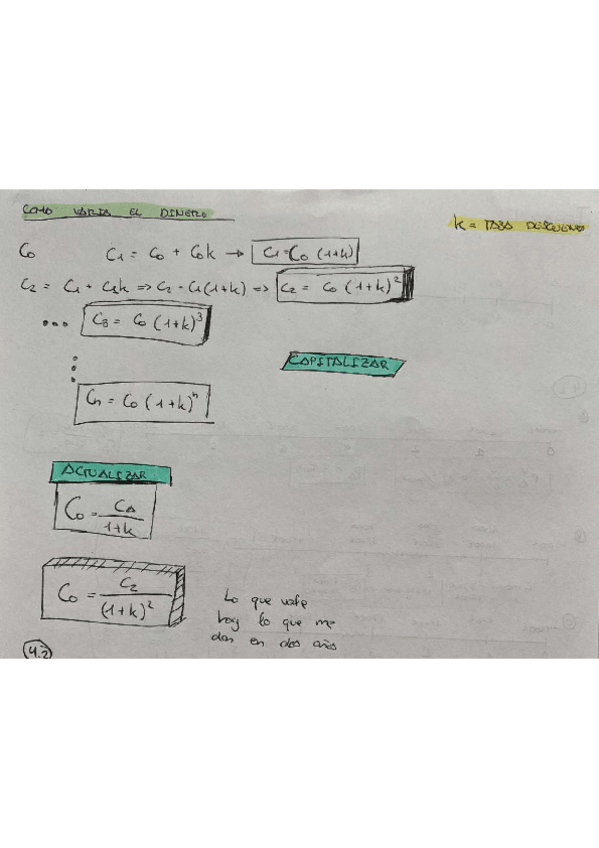 COMO VARIA EL DINERO
k = TASA DESCUENTO
C0 C1 = C0 + C0k → C1 = C0 (1+k)
C2 = C1 + C1k => C2 = C1(1+k) => C2 = C0 (1+k)^2
... C3 = C0 (1+k)^3
CAPITALIZAR
⋮
Cn = C0 (1+k)^n
ACTUALIZAR
C0 = C1/(1+k)
C0 = C2/(1+k)^2
Lo que vale
hoy lo que me
dan en dos años
4.2